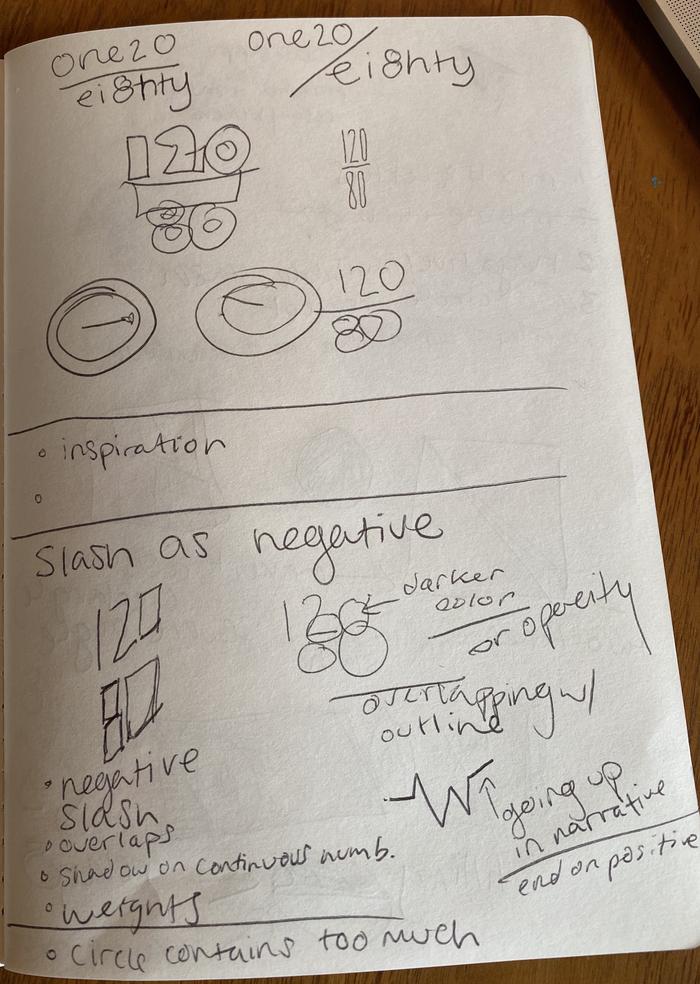 one20
eighty
one20/
eighty
120
80
120
80
120
80
inspiration
Slash as negative
120
80
120
80
darker
color
or opacity
overlapping w/
outline
negative
slash
overlaps
shadow on continuous numb.
weights
going up
in narrative
end on positive
circle contains too much